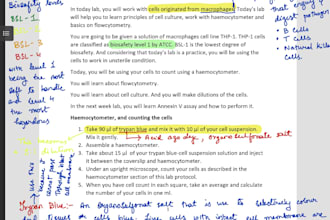 Biosafety levels
BSL - 1
BSL - 3
BSL - 4
with level 1
being the most
safe to handle
and level 4
the most
hazardous
In today lab, you will work with cells originated from macrophages. Today's lab
will help you to learn principles of cell culture, work with haemocytometer and
basics on flowcytometry.
You are going to be given a solution of macrophages cell line THP-1. THP-1 cells
are classified as biosafety level 1 by ATCC. BSL-1 is the lowest degree of
biosafety. And considering that today's lab is a practice, you will be using the
cells to work in unsterile condition.
Today, you will be using your cells to count using a haemocytometer.
You will learn about flowcytometry.
You will learn about cell culture. And you will make dilutions of the cells.
In the next week lab, you will learn Annexin V assay and how to perform it.
Haemocytometer, and counting the cells
1. Take 90 µl of trypan blue and mix it with 10 µl of your cell suspension.
Mix it gently. → Acid azo dye,
2. Assemble a haemocytometer.
3. Take about 15 µl of your trypan blue-cell suspension solution and inject
it between the coverslip and haemocytometer.
4. Under an upright microscope, count your cells as described in the
haemocytometer section of this lab protocol.
5. When you have cell count in each square, take an average and calculate
the number of your cells in one ml.
digest pathogens
• B cells
• T cells
• Natural killer
cells
Trypan Blue: - An that is used to selectively colour